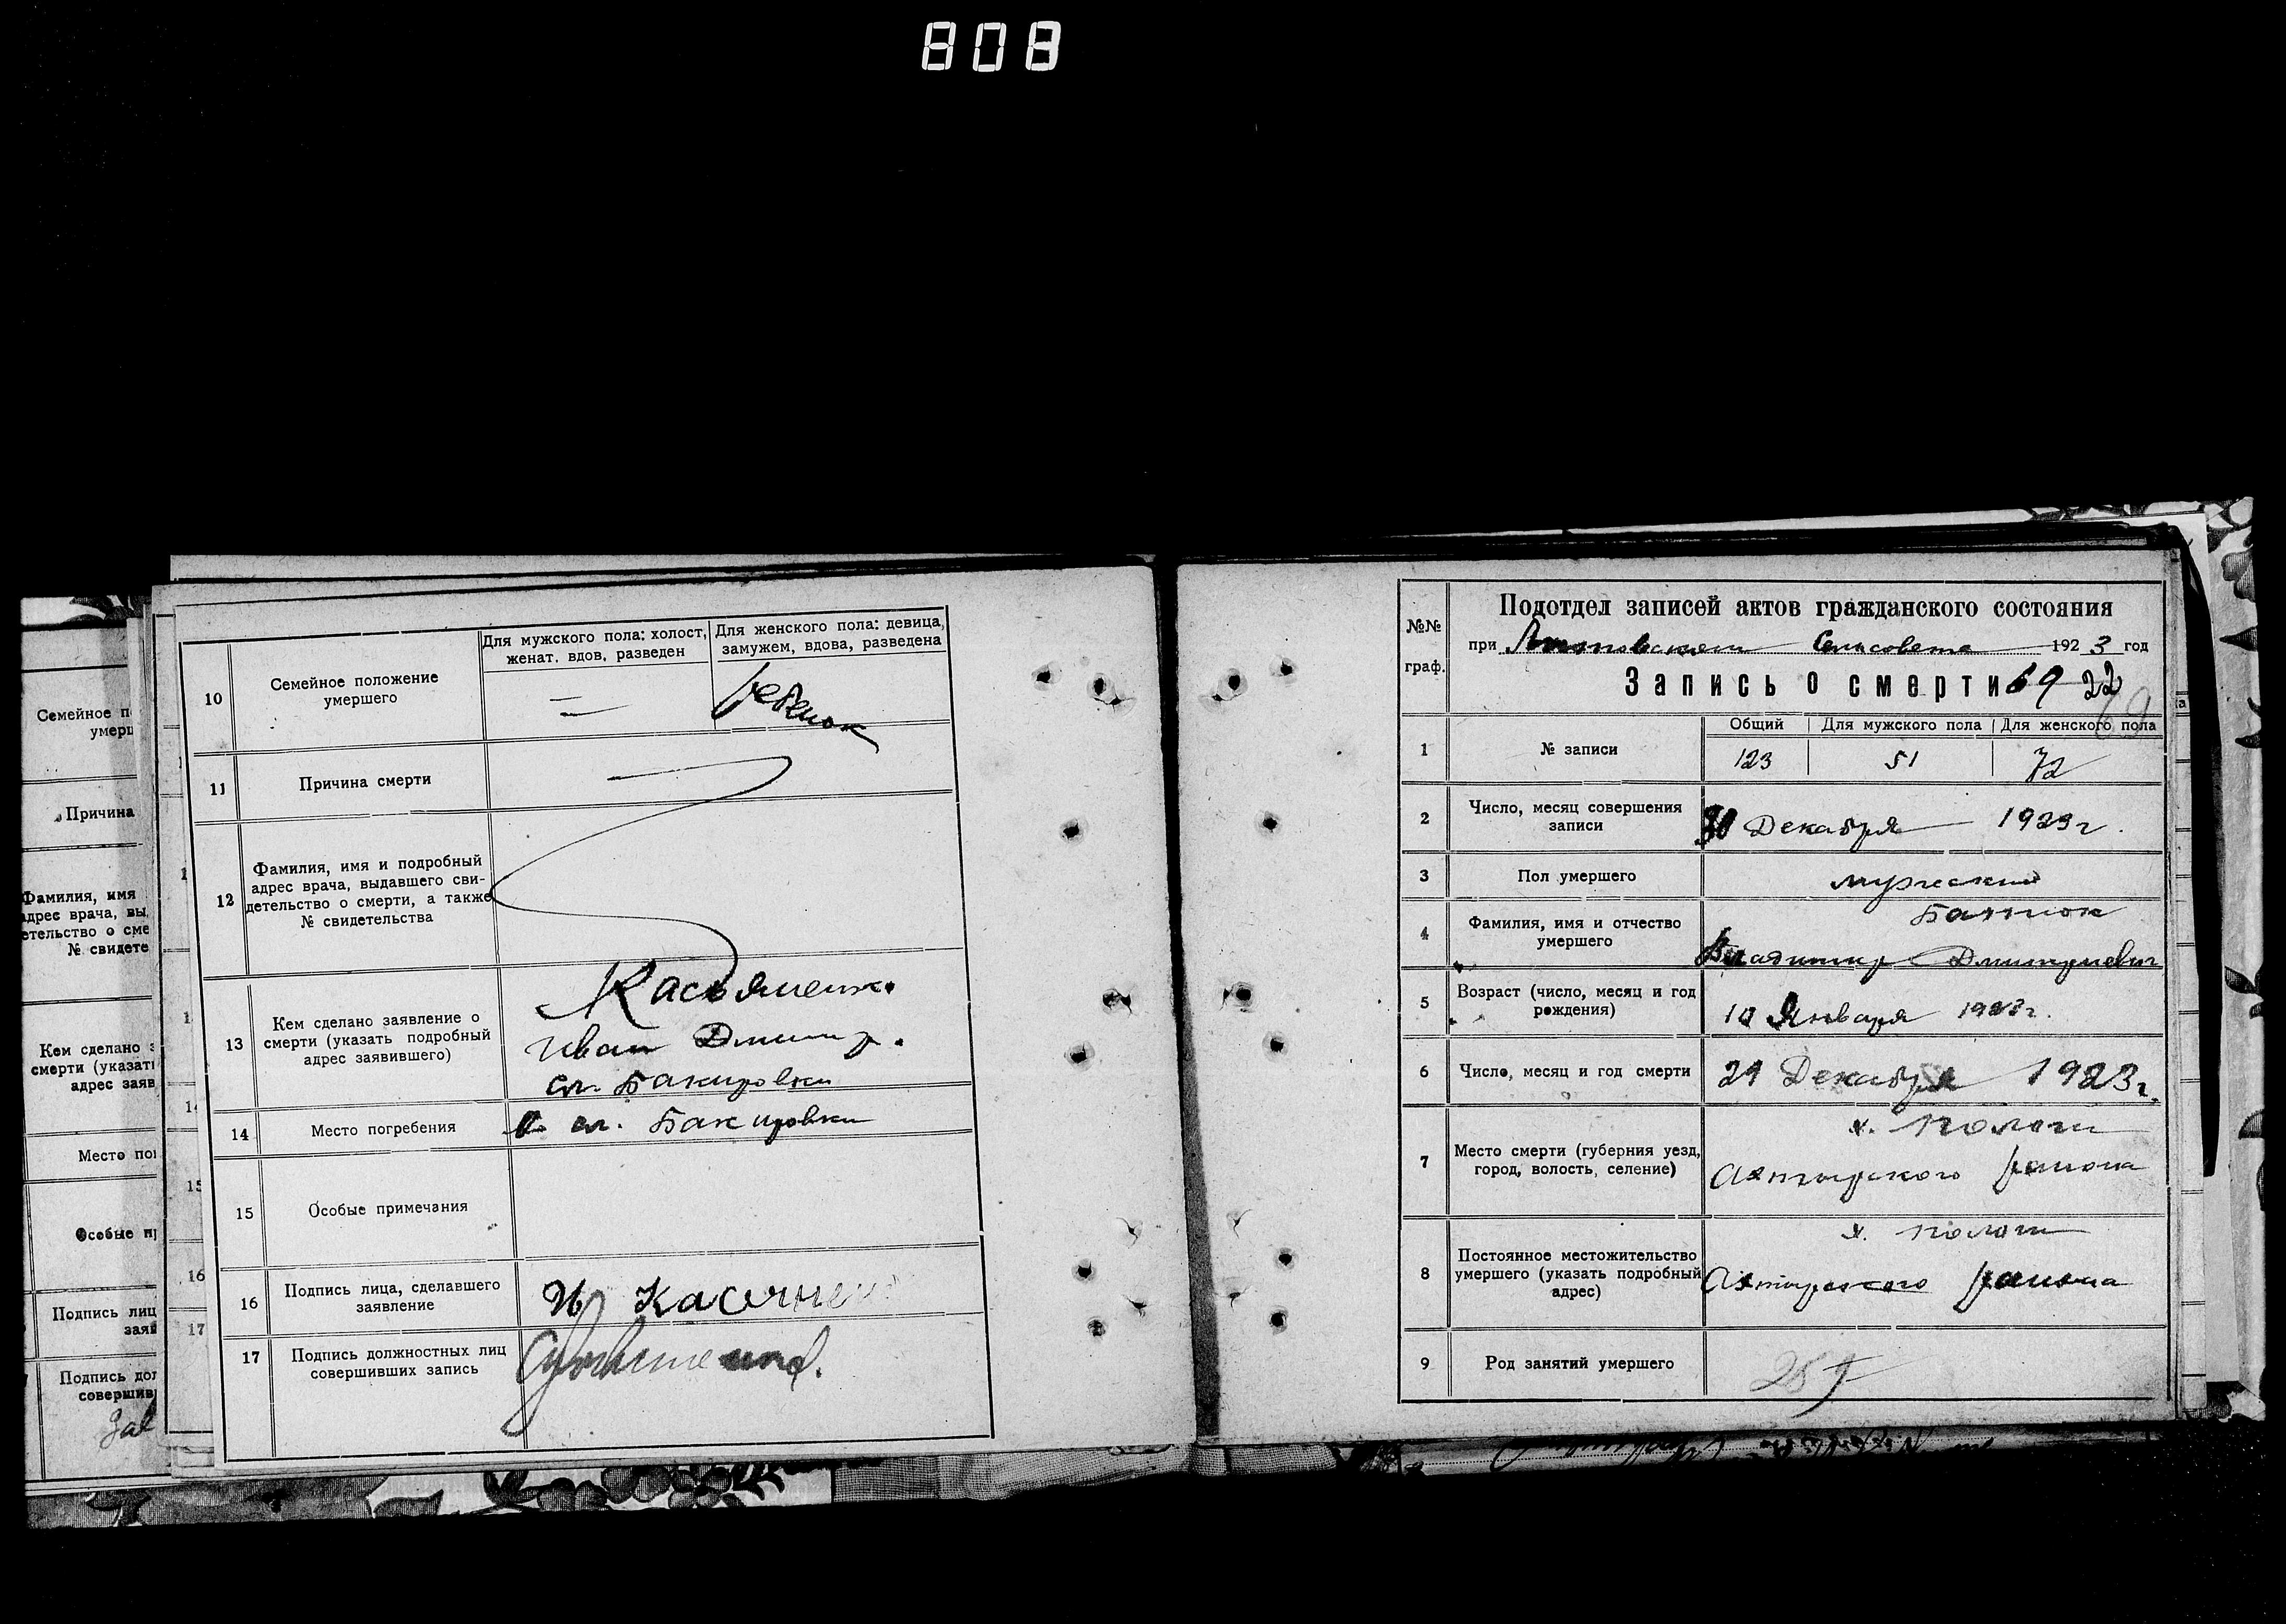 808
10
Семейное положение
умершего
Для мужского пола: холост,
женат. вдов, разведен
Для женского пола: девица,
замужем, вдова, разведена
ребенок
11
Причина смерти
12
Фамилия, имя и подробный
адрес врача, выдавшего сви-
детельство о смерти, а также
№ свидетельства
13
Кем сделано заявление о
смерти (указать подробный
адрес заявившего)
Касьяненко
Иван Дмитр.
сл. Бакировки
14
Место погребения
сл. Бакировки
15
Особые примечания
16
Подпись лица, сделавшего
заявление
17
Подпись должностных лиц
совершивших запись
Семейное п
умерш
Причина
Фамилия, имя
адрес врача, вы
етельство о сме
№ свидете
Кем сделано з
смерти (указать
адрес заяв
Место пог
Особые пр
Подпись лиц
заяв
Подпись дол
совершив
Зав
№№
граф.
Подотдел записей актов гражданского состояния
при Сельсовета 1923 год
Запись о смерти 69 22
69
1
№ записи
Общий
Для мужского пола
Для женского пола
123
51
72
2
Число, месяц совершения
записи
30 Декабря 1923 г.
3
Пол умершего
мужский
4
Фамилия, имя и отчество
умершего
Владимир Дмитриевич
5
Возраст (число, месяц и год
рождения)
10 Января 1923 г.
6
Число, месяц и год смерти
29 Декабря 1923 г.
7
Место смерти (губерния уезд,
город, волость, селение)
х. Пологи
Ахтырского района
8
Постоянное местожительство
умершего (указать подробный
адрес)
х. Пологи
Ахтырского района
9
Род занятий умершего